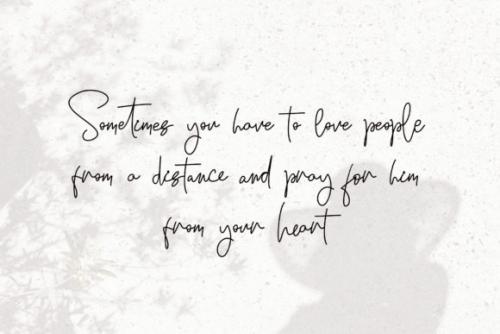 Sometimes you have to love people
from a distance and pray for him
from your heart